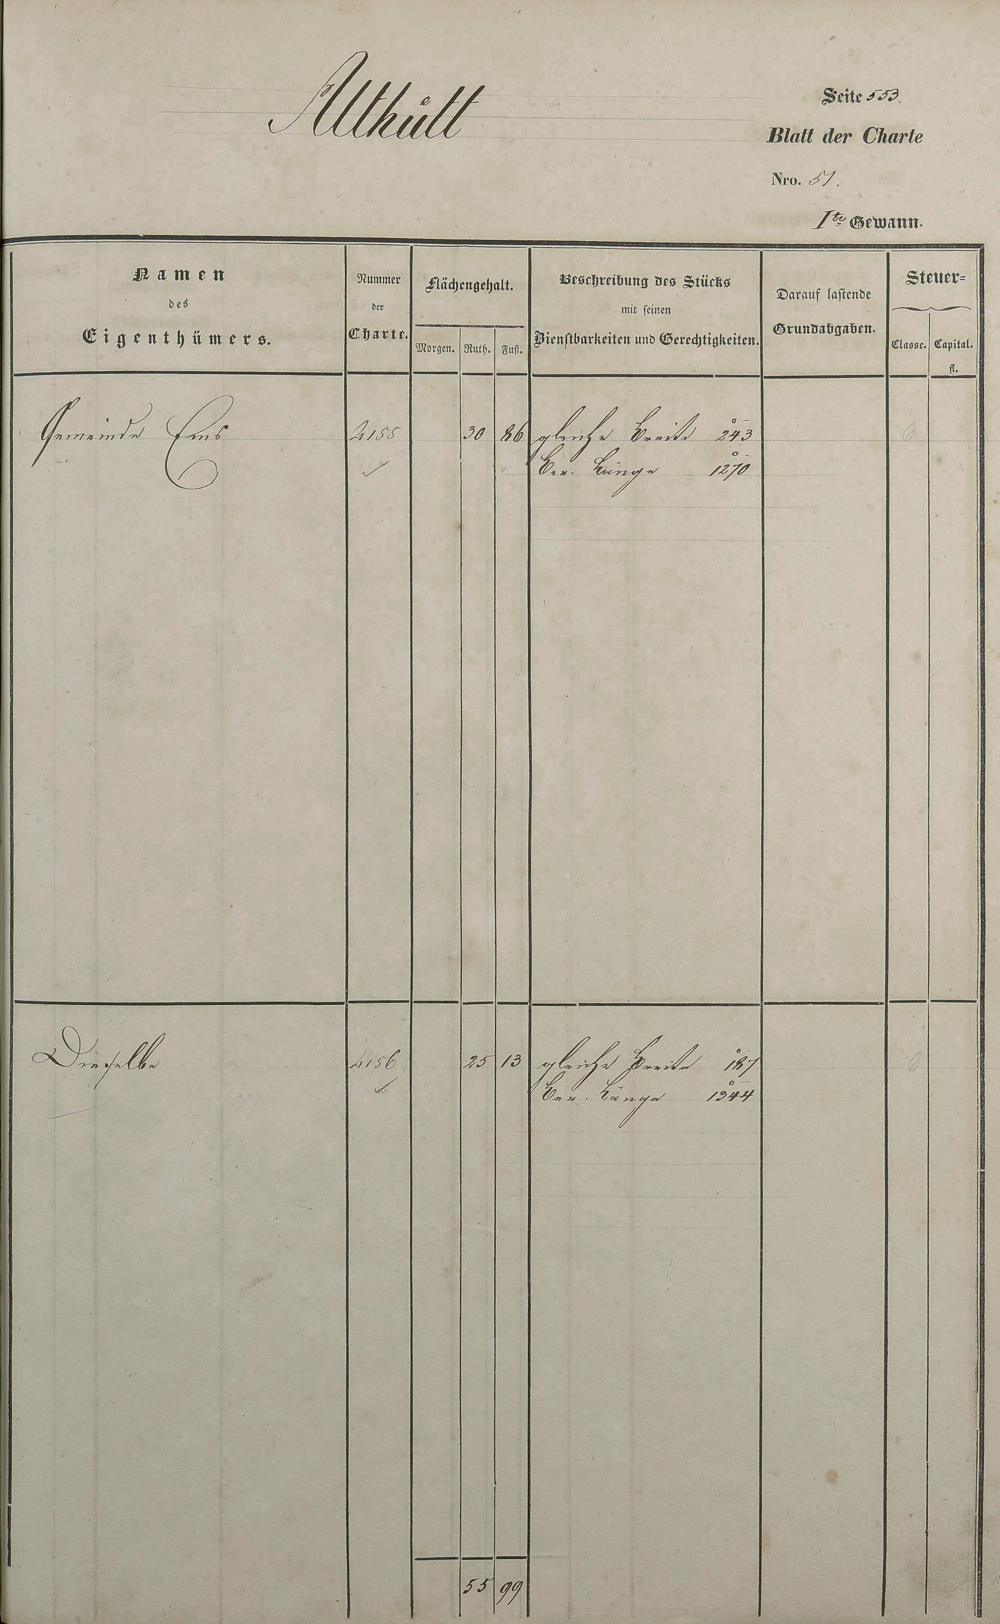 Althütt
Seite 553.
Blatt der Charte
Nro. 51.
1te Gewann.
Namen
des
Eigenthümers.
Nummer
der
Charte.
Flächengehalt.
Morgen. Ruth. Fuß.
Beschreibung des Stücks
mit seinen
Dienstbarkeiten und Gerechtigkeiten.
Darauf lastende
Grundabgaben.
Steuer-
Classe. Capital.
fl.
Gemeinde Ems 4155 30 86 gleiche Breite 243 6
Ber. Länge 1270
Dieselbe 4156 25 13 gleiche Breite 187 6
Ber. Länge 1344
55 99